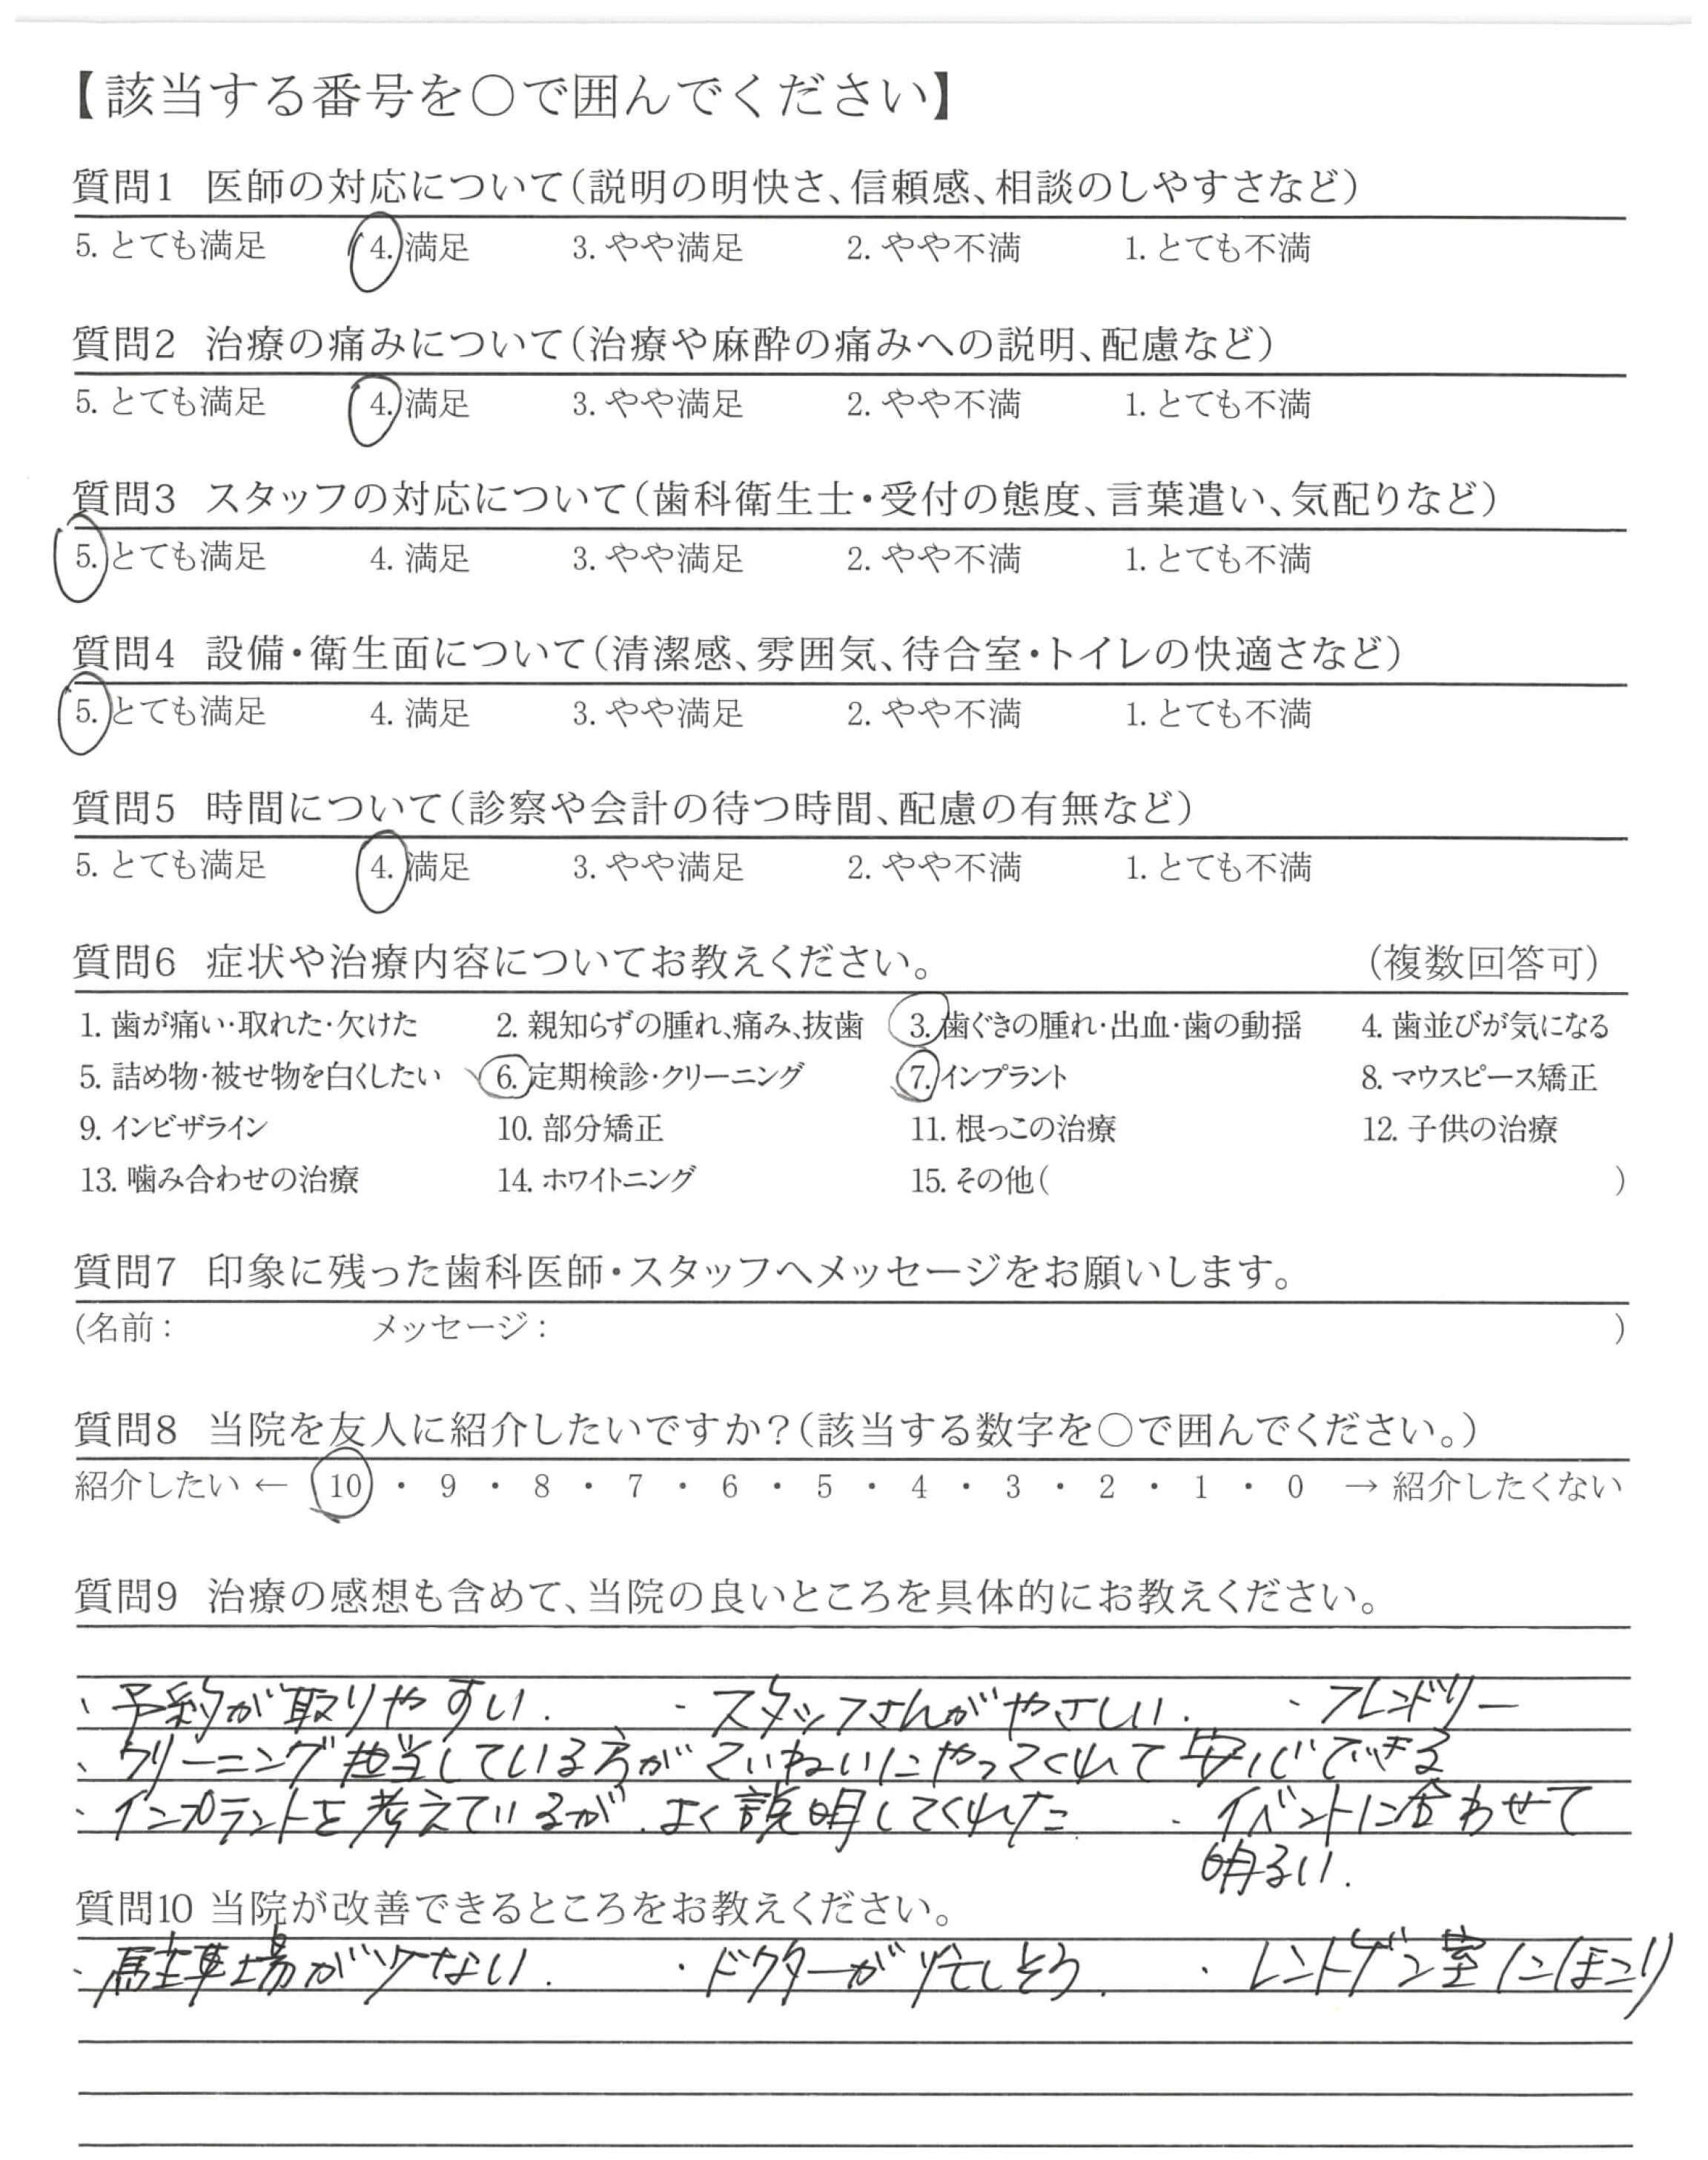 【該当する番号を○で囲んでください】
質問1 医師の対応について(説明の明快さ、信頼感、相談のしやすさなど)
5. とても満足 4. 満足 3. やや満足 2. やや不満 1. とても不満
質問2 治療の痛みについて(治療や麻酔の痛みへの説明、配慮など)
5. とても満足 4. 満足 3. やや満足 2. やや不満 1. とても不満
質問3 スタッフの対応について(歯科衛生士・受付の態度、言葉遣い、気配りなど)
5. とても満足 4. 満足 3. やや満足 2. やや不満 1. とても不満
質問4 設備・衛生面について(清潔感、雰囲気、待合室・トイレの快適さなど)
5. とても満足 4. 満足 3. やや満足 2. やや不満 1. とても不満
質問5 時間について(診察や会計の待つ時間、配慮の有無など)
5. とても満足 4. 満足 3. やや満足 2. やや不満 1. とても不満
質問6 症状や治療内容についてお教えください。 (複数回答可)
1. 歯が痛い・取れた・欠けた 2. 親知らずの腫れ、痛み、抜歯 3. 歯ぐきの腫れ・出血・歯の動揺 4. 歯並びが気になる
5. 詰め物・被せ物を白くしたい 6. 定期検診・クリーニング 7. インプラント 8. マウスピース矯正
9. インビザライン 10. 部分矯正 11. 根っこの治療 12. 子供の治療
13. 噛み合わせの治療 14. ホワイトニング 15. その他( )
質問7 印象に残った歯科医師・スタッフへメッセージをお願いします。
(名前: メッセージ: )
質問8 当院を友人に紹介したいですか?(該当する数字を○で囲んでください。)
紹介したい ← 10 ・ 9 ・ 8 ・ 7 ・ 6 ・ 5 ・ 4 ・ 3 ・ 2 ・ 1 ・ 0 → 紹介したくない
質問9 治療の感想も含めて、当院の良いところを具体的にお教えください。
・予約が取りやすい. ・スタッフさんがやさしい. ・フレンドリー
・クリーニング担当している方がていねいにやってくれて安心できる
・インプラントを考えているが、よく説明してくれた ・イベントに合わせて
明るい.
質問10 当院が改善できるところをお教えください。
・駐車場が少ない. ・ドクターが忙しそう. ・レントゲン室にほこり